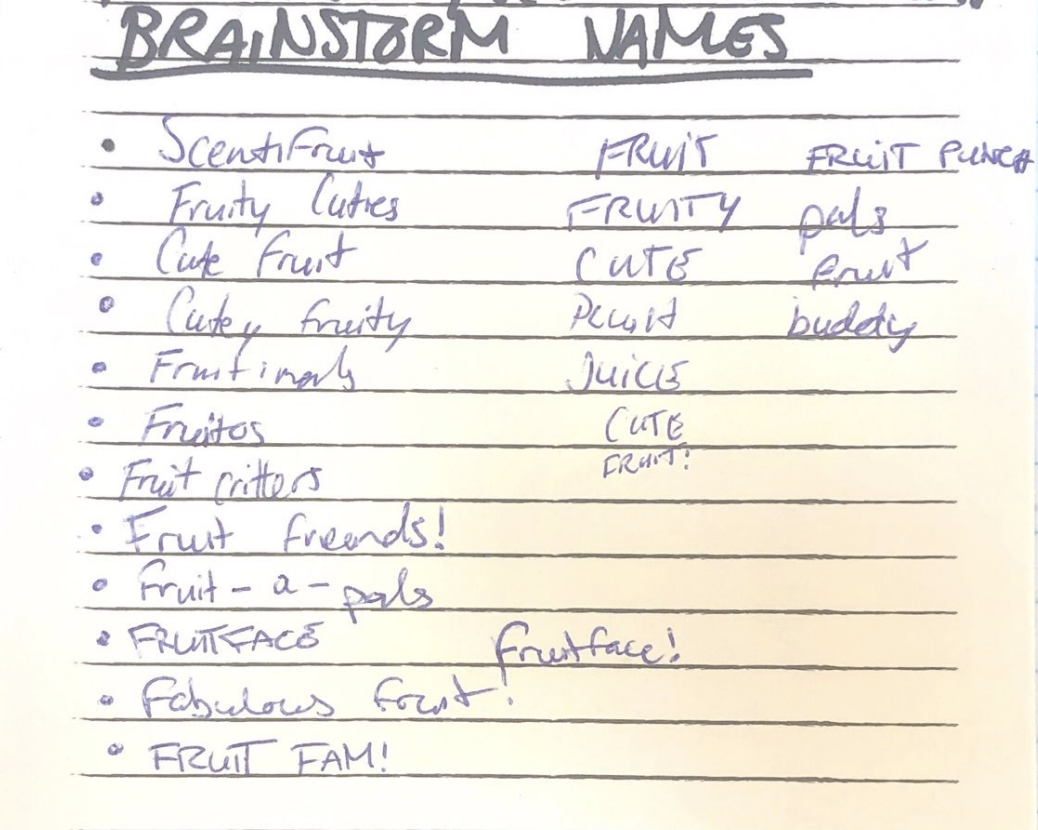 BRAINSTORM NAMES
• ScentiFruit FRUIT FRUIT PUNCH
• Fruity Cuties FRUITY pals
• Cute fruit CUTE fruit
• Cutey fruity buddy
• Fruitimals JUICIE
• Fruitos CUTE
• Fruit critters FRUIT!
• Fruit freends!
• Fruit-a-pals
• FRUITFACE fruitface!
• Fabulous fruit!
• FRUIT FAM!